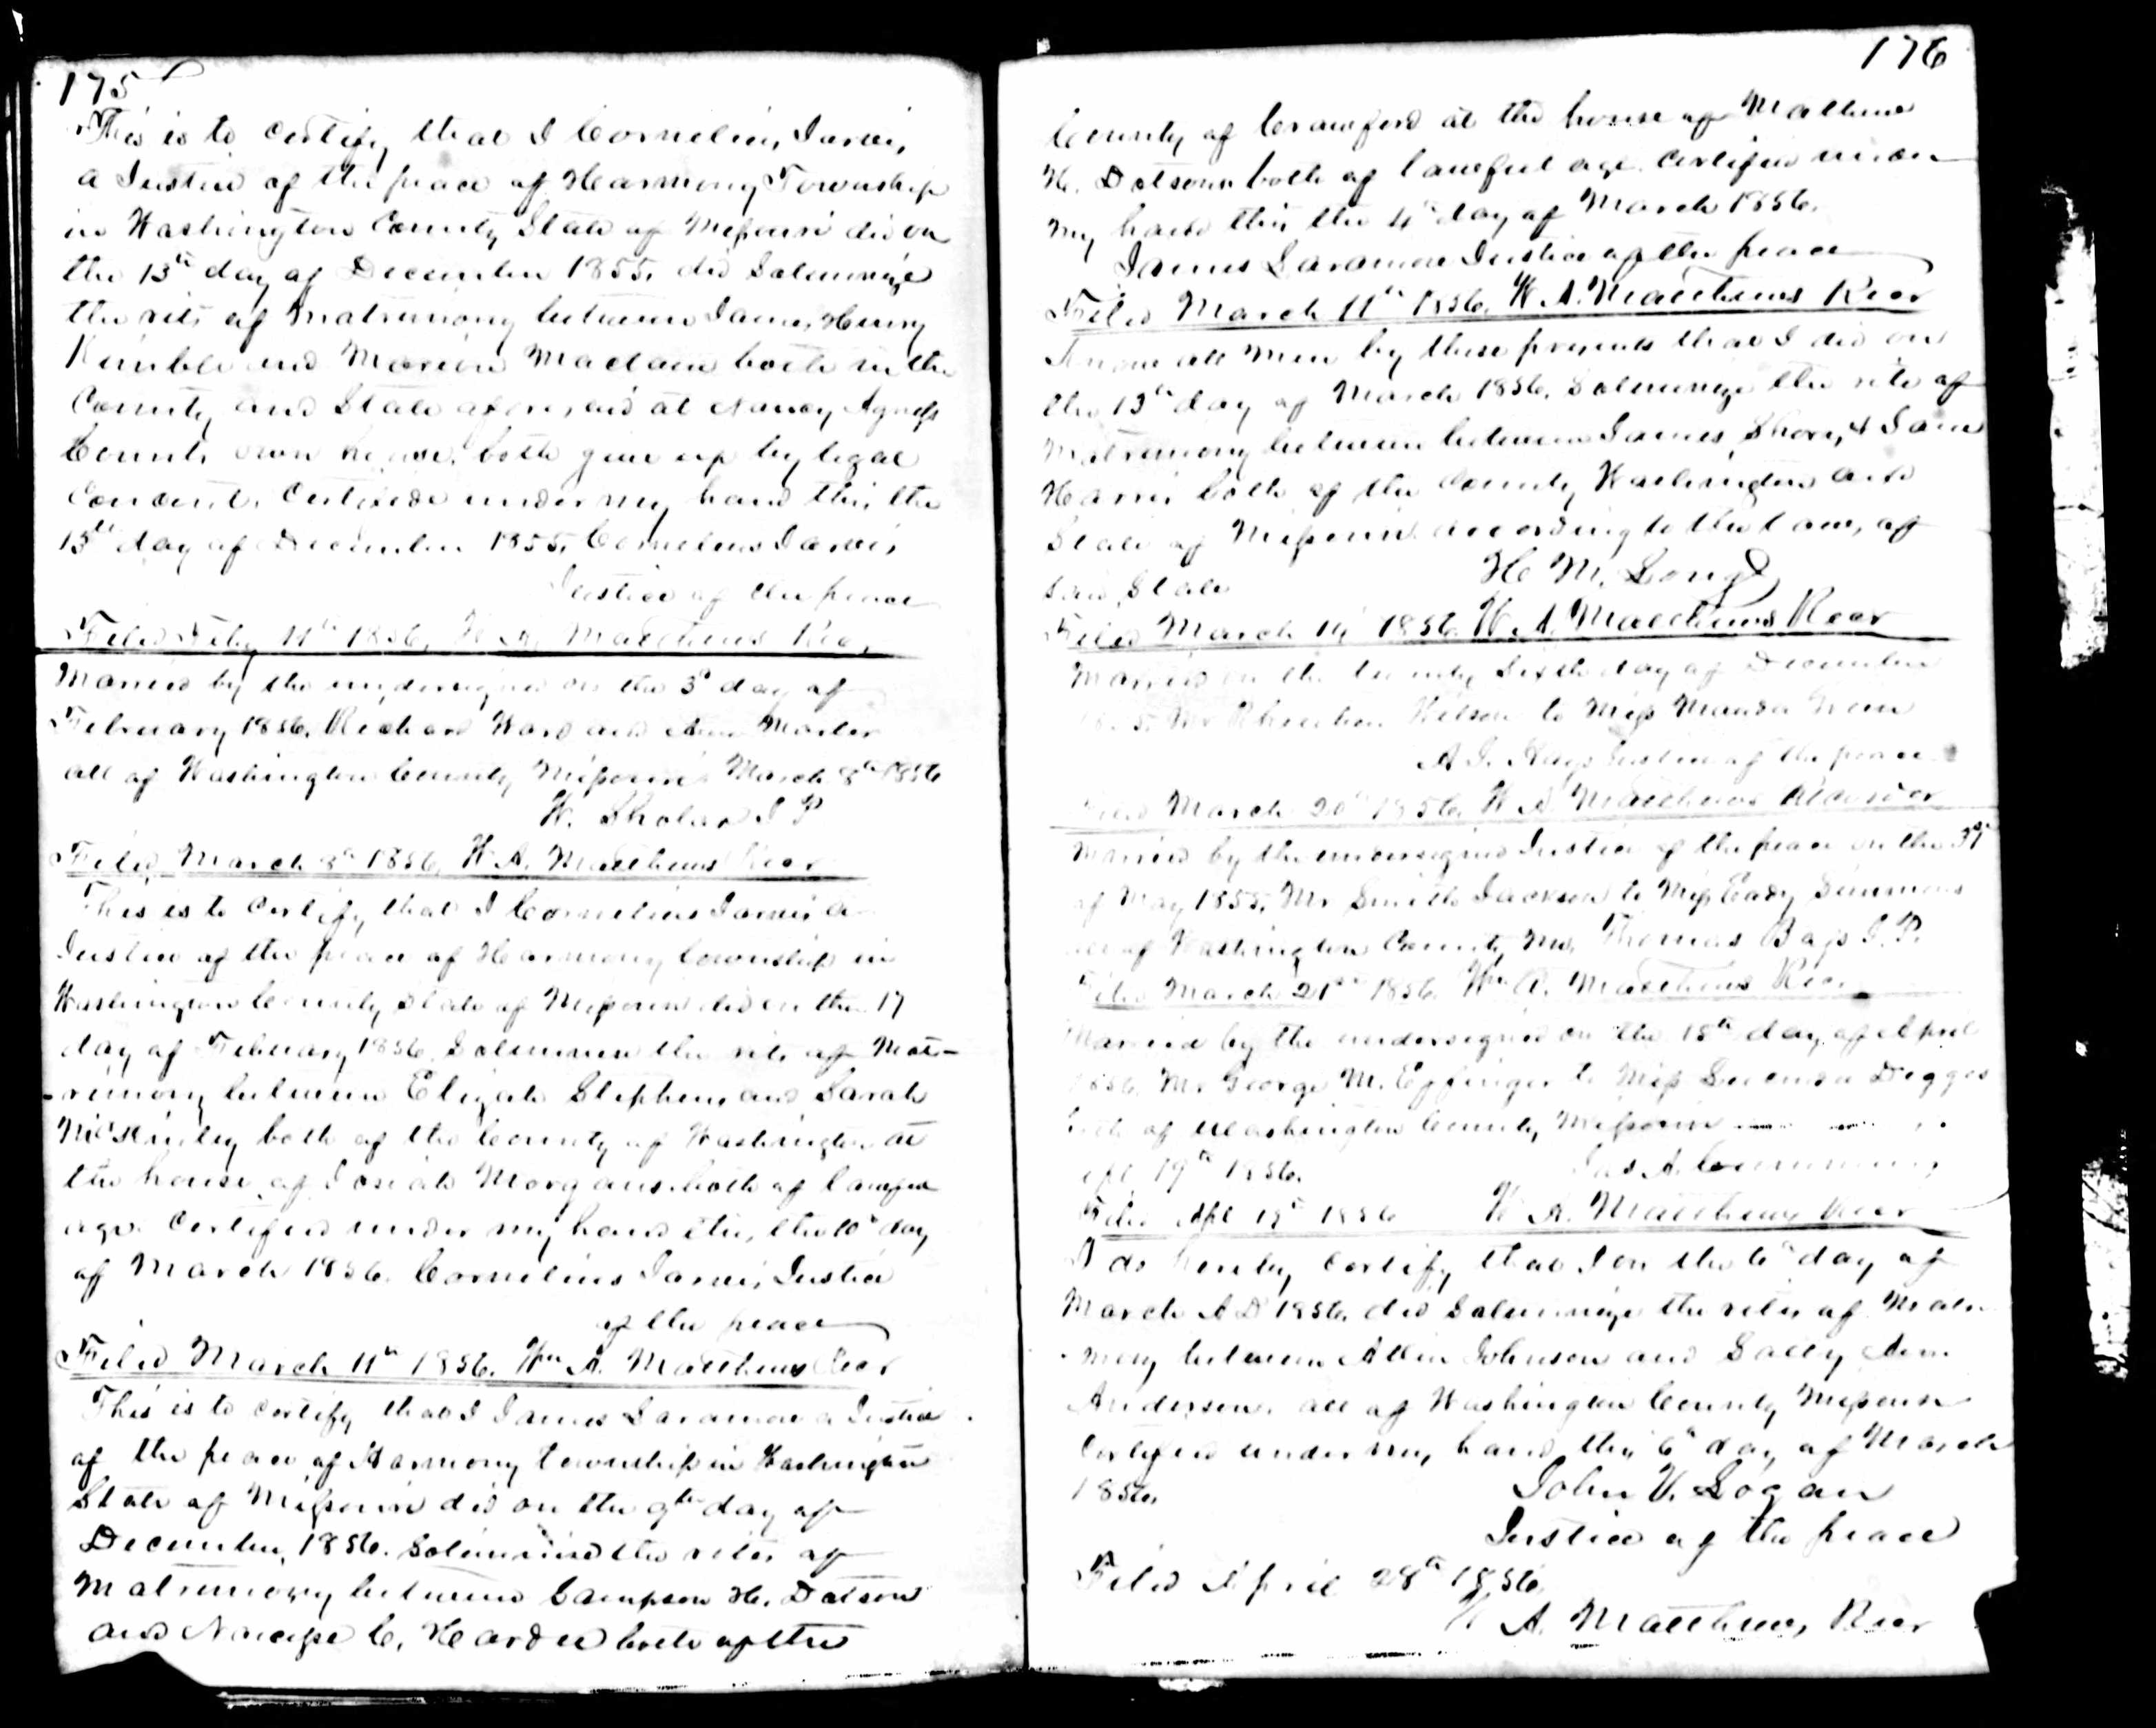 175
This is to Certify that I Cornelius Jarvis
a Justice of the peace of Harmony Township
in Washington County State of Missouri did on
the 13th day of December 1855, did Solemnize
the rits of Matrimony between James Henry
Kimble and Marion Maclain both in the
County and State aforesaid at Nancy Agness
own house, both give up by legal
Concent. Certified under my hand this the
13th day of December 1855, Cornelius Jarvis
Justice of the peace
Filed Feby 11th 1856, W. A. Matthews Rec,
Married by the undersigned on the 3d day of
February 1856, Richard Ward and Ann
all of Washington County Missouri March 8th 1856
W. Sholar J P
Filed March 8th 1856, W A. Matthews Recr
This is to Certify that I Cornelius Jarvis a
Justice of the peace of Harmony township in
Washington County State of Missouri did on the 17
day of February 1856 Solemnise the rits of Mat-
-rimony between Elizah Stephens and Sarah
both of the County of Washington at
the house of Josiah Morgans both of lawful
age. Certified under my hand this, the 10th day
of March 1856. Cornelius Jarvis, Justice
of the peace
Filed March 11th 1856. Wm A. Matthews Recr
This is to Certify that I James Laramore a Justice
of the peace of Harmony township in Washington
State of Missouri did on the 9th day of
December, 1856. Solemnised the rites of
Matrimony between Sampson H. Dotson
and C. Harder both of the
176
County of Crawford at the house of Matthew
H. Dotsons both of lawful age. Certified under
my hand this the 4th day of March 1856.
James Laramore Justice of the peace
Filed March 11th 1856. W. A. Matthews Recr
Know all Men by these presents that I did on
the 13th day of March 1856, Solemnize the rite of
Matrimony between between James Shore, & Jane
Harris both of the County Washington and
State of Missouri according to the Laws, of
Said State H M. Long
Filed March 14 1856 W. A. Matthews Recr
Married on the twenty Sixth day of December
Mr Wilson to Miss Manda Green
A. J. Hays Justice of the peace
Filed March 20th 1856, W A. Matthews Recorder
Married by the undersigned Justice of the peace on the 31st
of May 1855, Mr Smith Jackson to Miss Eady Simmons
all of Washington County Mo, Thomas Bass J. P.
Filed March 21st 1856. Wm A. Matthews Rec.
Married by the undersigned on the 18th day of April
1856, Mr George M. Eppinger to Miss Lucinda Diggs
both of Washington County Missouri
Apl 19th 1856. Jas A. Cumming
Filed Apl 19th 1856 W A. Matthews Recr
I do hereby Certify that I on the 6th day of
March A D 1856, did Solemnize the rites of Matri
mony between Allen Johnson and Sally Ann
Anderson. all of Washington County Missouri
Certified under my hand this 6th day of March
1856, John V. Logan
Justice of the peace
Filed April 28th 1856
W A. Matthews, Recr